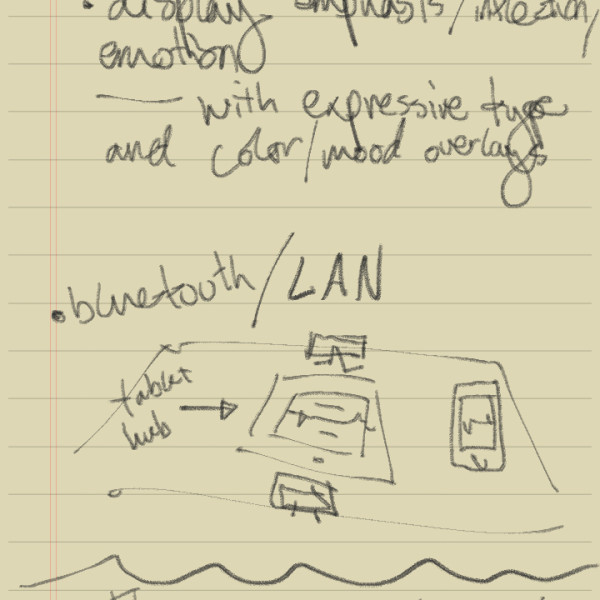 • display emphasis/inflection/
emotion
— with expressive type
and color/mood overlays
• bluetooth/LAN
tablet
hub →